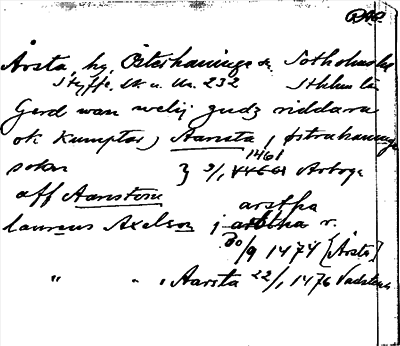 Årsta, hg, Österhaninge s. Sotholms hd
Styffe, Sk. u. Un. 232 Sthlms län
Gerd wan welij gudz riddara
ok kumptor, Aarsta, østrahaninge
sokn } 3/1 1461 Arboga
aff Aarstom
arstha
laurens Axelson j arstha r.
30/9 1474 [Årsta]
" " , Aarsta 22/1 1476 Vadstena